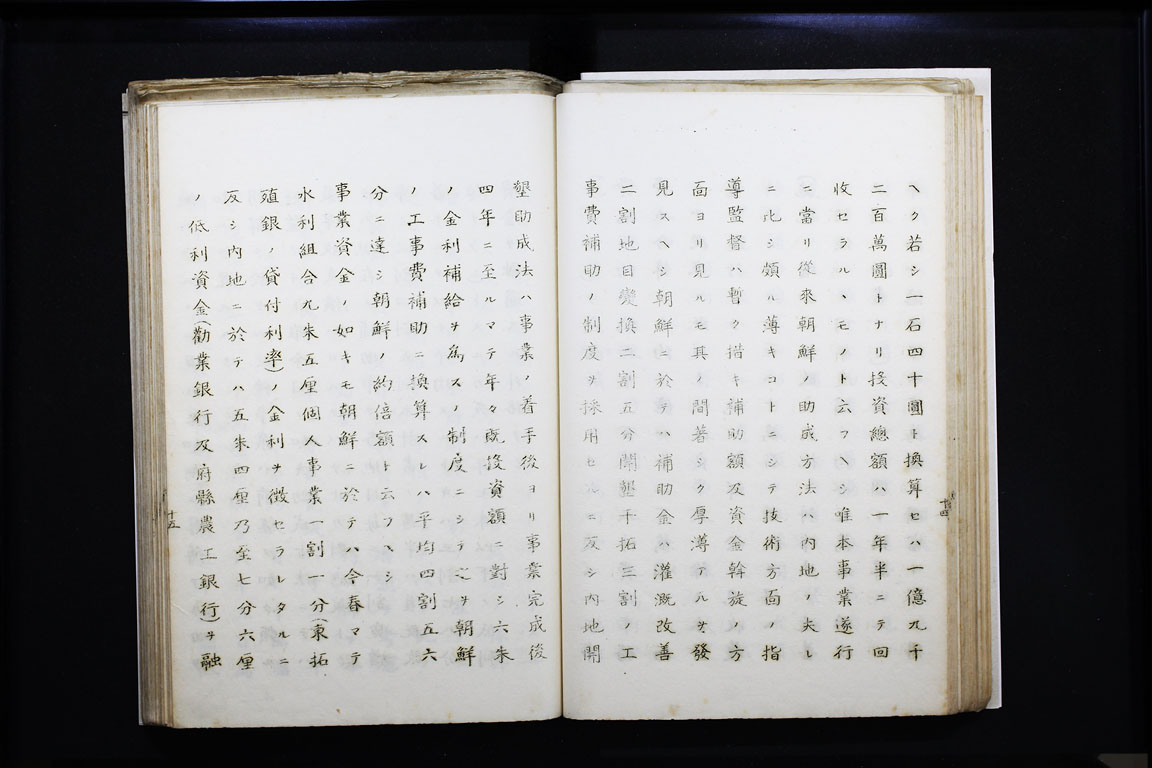 ヘク若シ一石四十圓ト換算セハ一億九千
二百萬圓トナリ投資總額ハ一年半ニテ回
收セラルヽモノト云フヘシ唯本事業遂行
ニ當リ從來朝鮮ノ助成方法ハ内地ノ夫レ
ニ比シ頗ル薄キコトニシテ技術方面ノ指
導監督ハ暫ク措キ補助額及資金斡旋ノ方
面ヨリ見ルモ其ノ間著シク厚薄アルヲ發
見スヘシ朝鮮ニ於テハ補助金ハ灌漑改善
二割地目變換二割五分開墾干拓三割ノ工
事費補助ノ制度ヲ採用セルニ反シ内地開
十四
墾助成法ハ事業ノ着手後ヨリ事業完成後
四年ニ至ルマテ年々既投資額ニ對シ六朱
ノ金利補給ヲ為スノ制度ニシテ之ヲ朝鮮
ノ工事費補助ニ換算スレハ平均四割五六
分ニ達シ朝鮮ノ約倍額ト云フヘシ
事業資金ノ如キモ朝鮮ニ於テハ今春マテ
水利組合九朱五厘個人事業一割一分(東拓
殖銀ノ貸付利率)ノ金利ヲ徴セラレタルニ
反シ内地ニ於テハ五朱四厘乃至七分六厘
ノ低利資金(勸業銀行及府縣農工銀行)ヲ融
十五